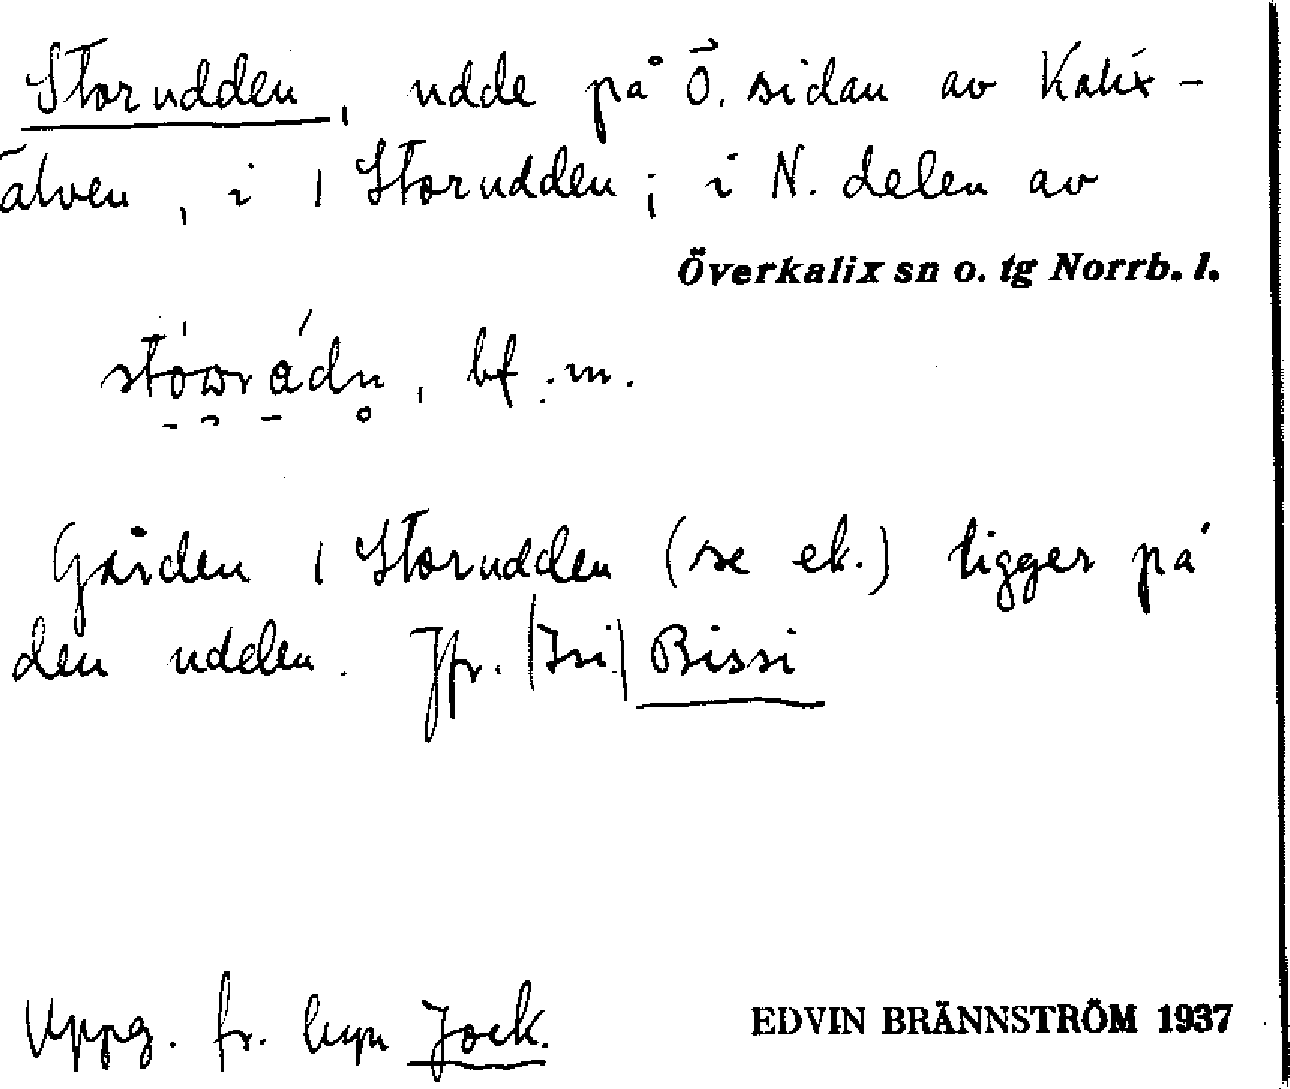 Storudden, udde på Ö. sidan av Kalix-
älven, i 1 Storudden; i N. delen av
Överkalix sn o. tg Norrb. l.
bf. m.
Gården 1 Storudden (se ek.) ligger på
den udden. Jfr. (Ini) Bissi
Uppg. fr. byn Jock.
EDVIN BRÄNNSTRÖM 1937